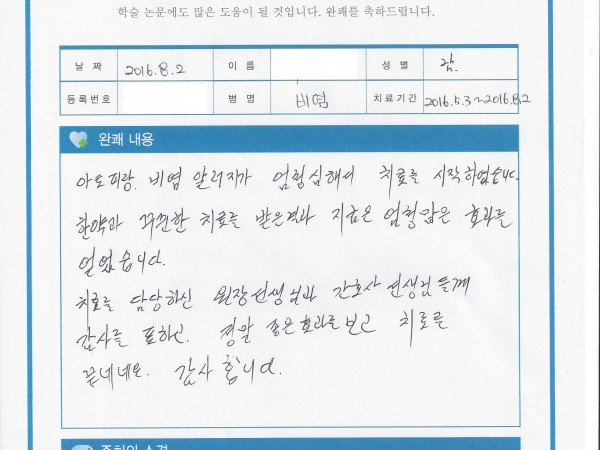 학술 논문에도 많은 도움이 될 것입니다. 완쾌를 축하드립니다.
날 짜 2016.8.2 이 름 성 별 남.
등록번호 병 명 비염 치료기간 2016.5.3~2016.8.2
완쾌 내용
아토피랑. 비염 알러지가 엄청심해서 치료를 시작하였습니다.
한약과 꾸준한 치료를 받은결과 지금은 엄청많은 효과를
얻었습니다.
치료를 담당하신 원장선생님과 간호사 선생님들께
감사를 표하고. 정말 좋은효과를보고 치료를
끝내네요. 감사합니다.